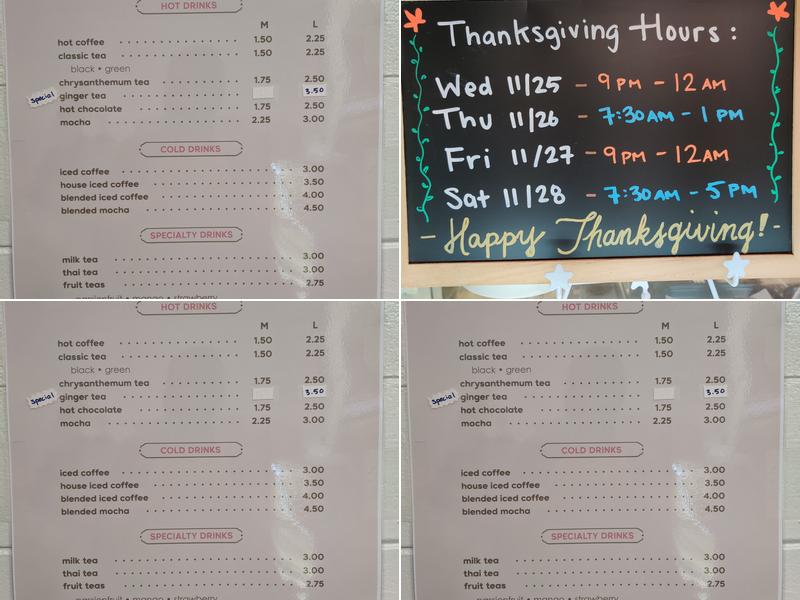 HOT DRINKS
M L
hot coffee 1.50 2.25
classic tea 1.50 2.25
black • green
chrysanthemum tea 1.75 2.50
special ginger tea 3.50
hot chocolate 1.75 2.50
mocha 2.25 3.00
COLD DRINKS
iced coffee 3.00
house iced coffee 3.50
blended iced coffee 4.00
blended mocha 4.50
SPECIALTY DRINKS
milk tea 3.00
thai tea 3.00
fruit teas 2.75
passionfruit • mango • strawberry
Thanksgiving Hours:
Wed 11/25 - 9PM - 12AM
Thu 11/26 - 7:30AM - 1PM
Fri 11/27 - 9PM - 12AM
Sat 11/28 - 7:30AM - 5PM
- Happy Thanksgiving! -
HOT DRINKS
M L
hot coffee 1.50 2.25
classic tea 1.50 2.25
black • green
chrysanthemum tea 1.75 2.50
special ginger tea 3.50
hot chocolate 1.75 2.50
mocha 2.25 3.00
COLD DRINKS
iced coffee 3.00
house iced coffee 3.50
blended iced coffee 4.00
blended mocha 4.50
SPECIALTY DRINKS
milk tea 3.00
thai tea 3.00
fruit teas 2.75
passionfruit • mango • strawberry
HOT DRINKS
M L
hot coffee 1.50 2.25
classic tea 1.50 2.25
black • green
chrysanthemum tea 1.75 2.50
special ginger tea 3.50
hot chocolate 1.75 2.50
mocha 2.25 3.00
COLD DRINKS
iced coffee 3.00
house iced coffee 3.50
blended iced coffee 4.00
blended mocha 4.50
SPECIALTY DRINKS
milk tea 3.00
thai tea 3.00
fruit teas 2.75
passionfruit • mango • strawberry